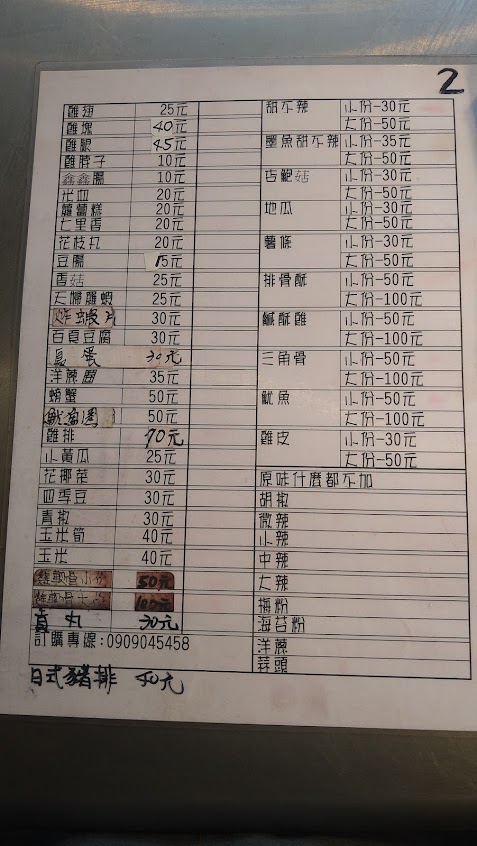 2
雞翅 25元
雞塊 40元
雞腿 45元
雞脖子 10元
鑫鑫腸 10元
米血 20元
蘿蔔糕 20元
七里香 20元
花枝丸 20元
豆腸 15元
香菇 25元
天婦羅蝦 25元
炸蝦丸 30元
百頁豆腐 30元
鳥蛋 30元
洋蔥圈 35元
螃蟹 50元
50元
雞排 70元
小黃瓜 25元
花椰菜 30元
四季豆 30元
青椒 30元
玉米筍 40元
玉米 40元
雞軟骨小份 50元
雞軟骨大份 100元
貢丸 30元
訂購專線:0909045458
日式豬排 40元
甜不辣 小份-30元
大份-50元
墨魚甜不辣 小份-35元
大份-50元
杏鮑菇 小份-30元
大份-50元
地瓜 小份-30元
大份-50元
薯條 小份-30元
大份-50元
排骨酥 小份-50元
大份-100元
鹹酥雞 小份-50元
大份-100元
三角骨 小份-50元
大份-100元
魷魚 小份-50元
大份-100元
雞皮 小份-30元
大份-50元
原味什麼都不加
胡椒
微辣
小辣
中辣
大辣
梅粉
海苔粉
洋蔥
蒜頭